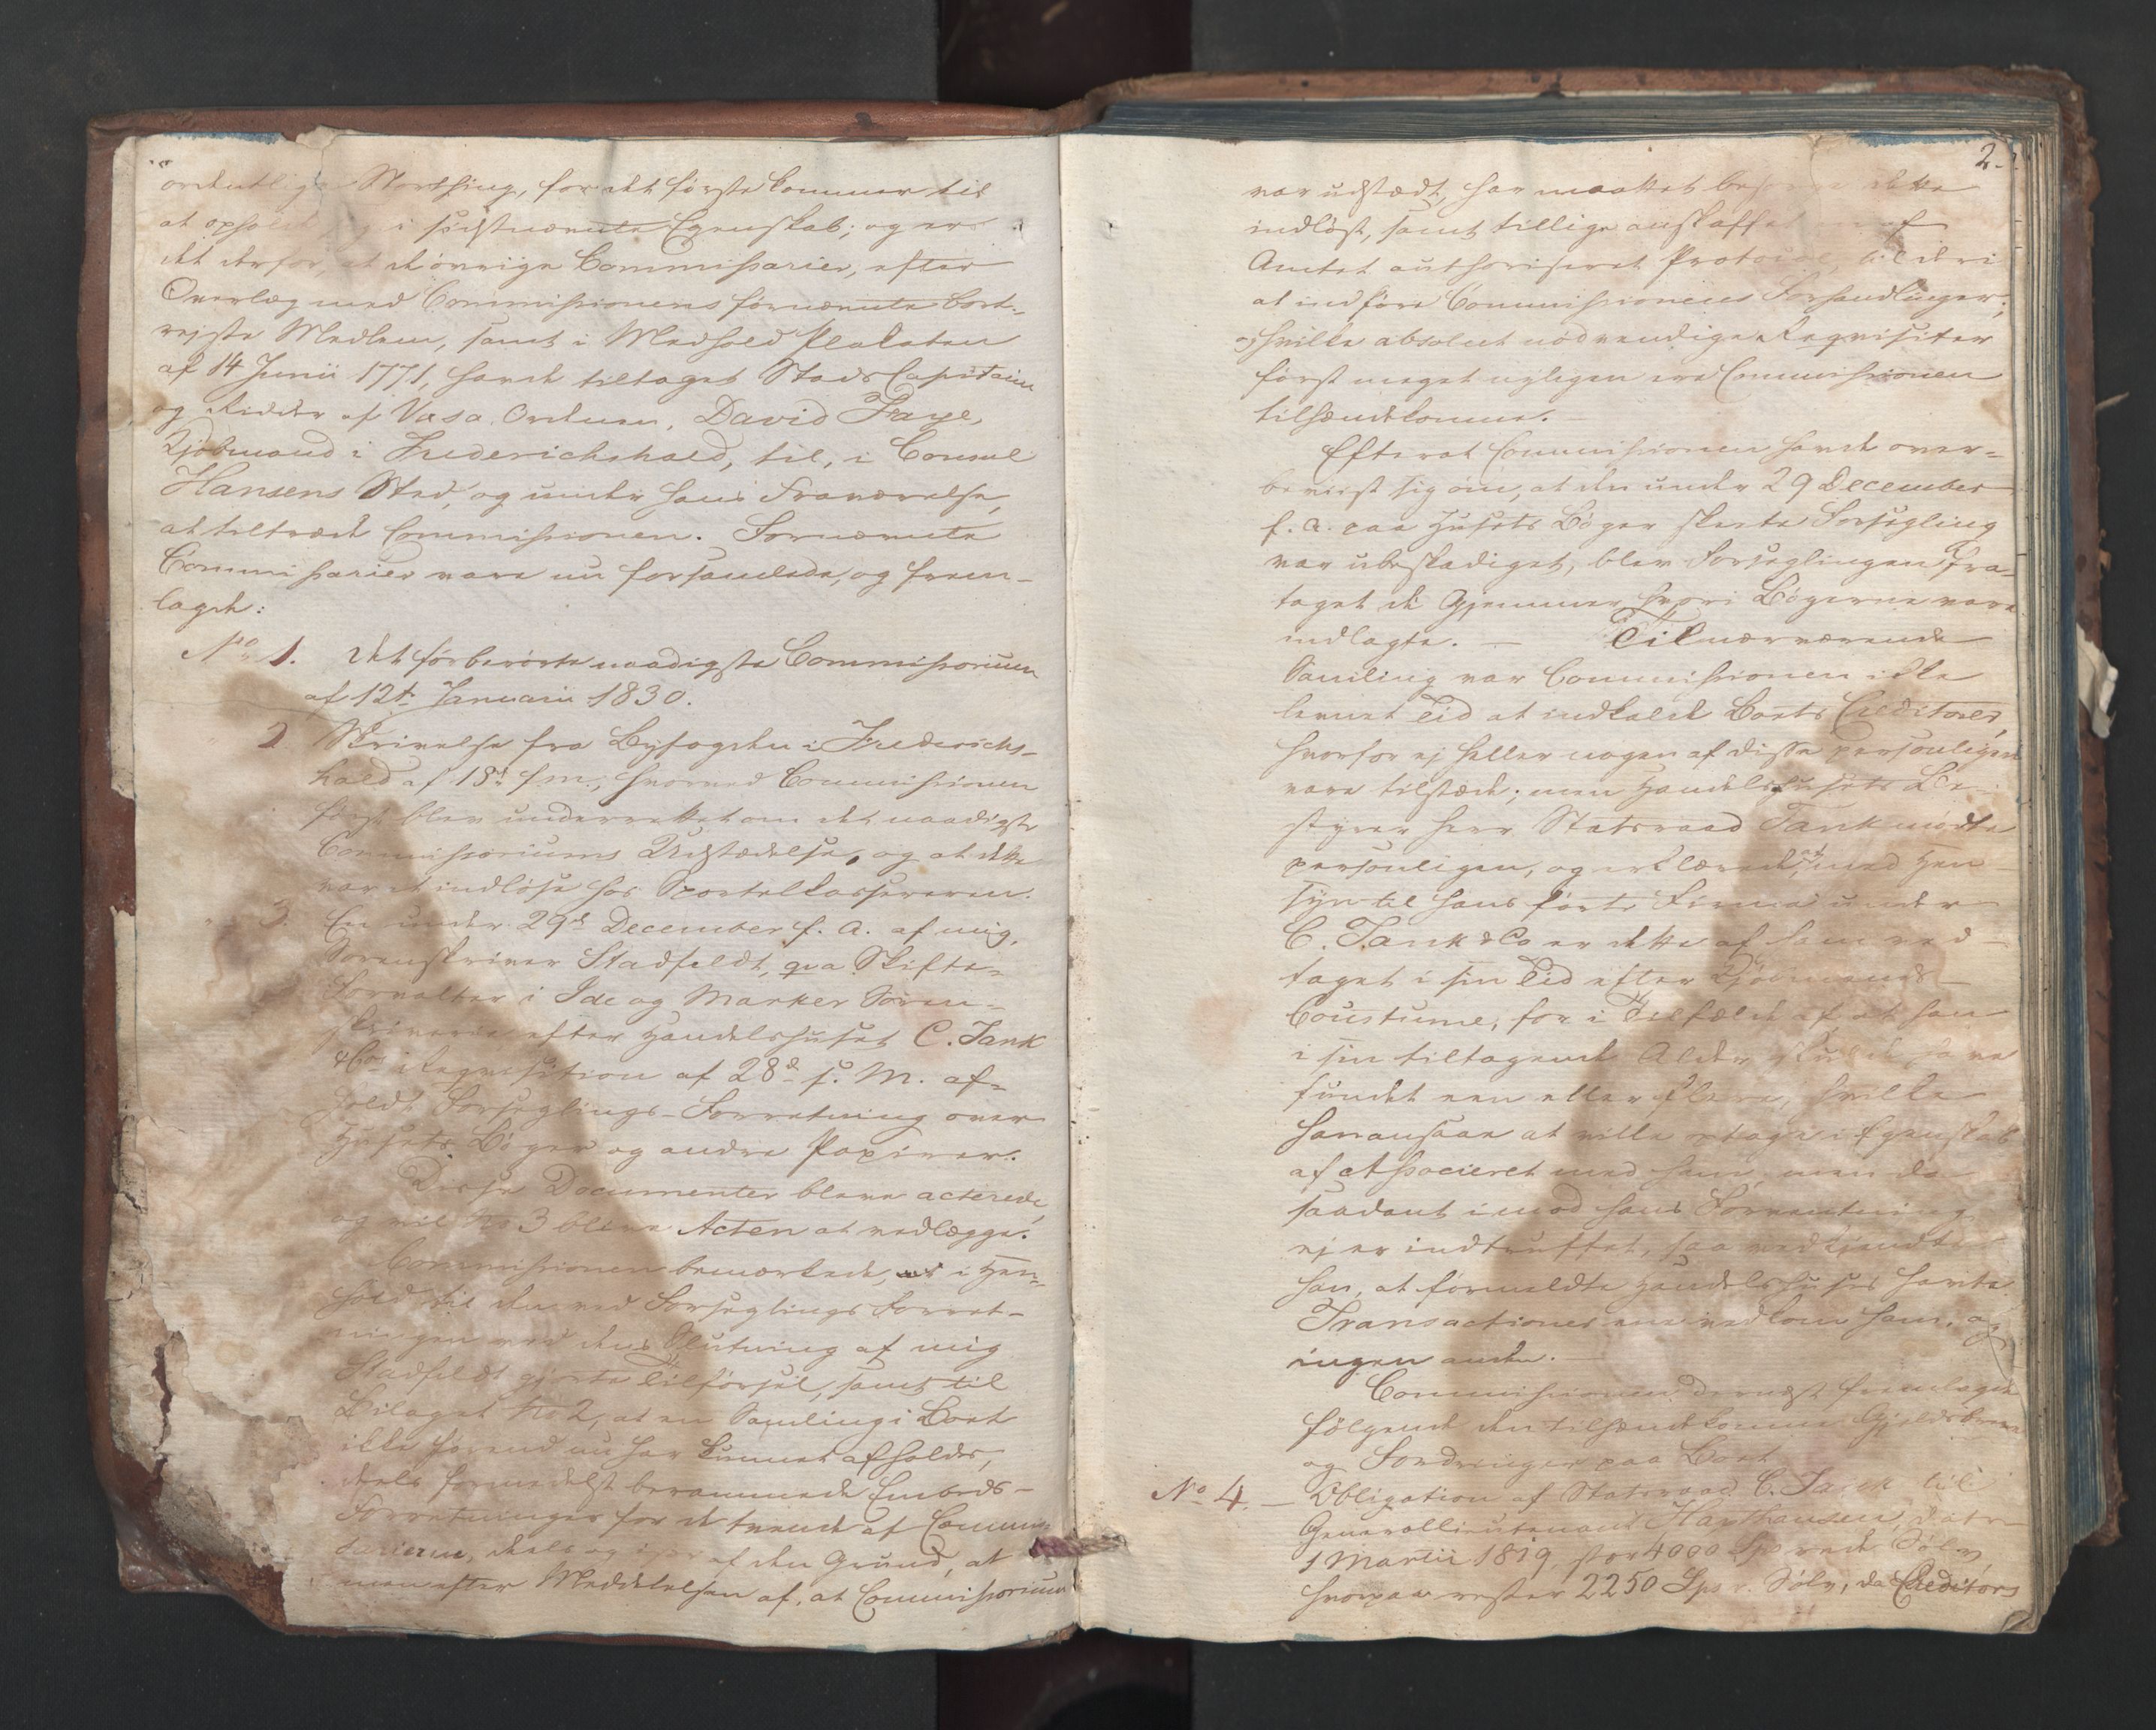 ordentlige Storthing, for det første kommer til
at opholde sig i sidstnævnte Egenskab; og er
det derfor, at de øvrige Commissarier, efter
Overlæg med Commissionens fornævnte bort-
rejste Medlem, samt i Medhold Plakaten
af 14 Junii 1771, havde tiltaget StadsCapitain
og Ridder af Vasa Ordenen, David Faye,
Kjøbmand i Frederichshald, til, i Consul
Hansens Sted, og under hans Fraværelse,
at tiltræde Commissionen. Fornævnte
Commissarier vare nu forsamlede, og frem-
lagde:
No 1. Det førberørte naadigste Commissorium
af 12te Januarii 1830.
2 Skrivelse fra Byfogden i Frederichs-
hald af 18d f.m., hvorved Commissionen
først blev underrettet om det naadigste
Commissoriums Udstædelse, og at dette
var at indløse hos Sportelkassereren.
3. En under 29d December f. A. af mig,
Sorenskriver Stadfeldt, qva Skifte-
forvalter i Ide og Marker Soren-
skriverie efter Handelshuset C. Tank
& Coes Reqvisition af 28d s. M. af-
holdt Forseglings-Forretning over
Husets Bøger og andre Papirer.
Disse Documenter bleve acterede,
og vil No 3 blive Acten at vedlægge.
Commissionen bemærkede, at i Hen-
hold til den ved Forseglings Forret-
ningen ved dens Slutning af mig
Stadfeldt gjorte Tilførsel, samt til
Bilaget No 2, at en Samling i Boet
ikke førend nu har kunnet afholdes,
deels formedelst berammede Embeds-
Forretninger for de tvende af Commis-
sarierne, deels og især af den Grund, at
man efter Meddelelsen af, at Commissorium
2.
var udstædt, har maattet besørge dette
indløst, samt tillige anskaffet en af
Amtet authoriseret Protocol, til deri
at indføre Commissionens Forhandlinger;
og hvilke absolut nødvendige Reqvisiter
først meget nyligen ere Commissionen
tilhændekomne.
Efterat Commissionen havde over-
beviist sig om, at den under 29 December
f. A. paa Husets Bøger skeete Forsegling
var ubeskadiget, blev Forseglingen fra-
taget de Gjemmer, hvori Bøgerne vare
indlagte. — Til nærværende
Samling var Commissionen ikke
levnet Tid at indkalde Boets Creditorer,
hvorfor ej heller nogen af disse personligen
vare tilstæde; men Handelshusets Be-
styrer Herr Statsraad Tank mødte
personligen, og erklærede, at med Hen-
syn til hans førte Firma under
C. Tank & Co er dette af ham ved-
taget i sin Tid efter Kjøbmands-
Coustume, for i Tilfælde af, at han
i sin tiltagende Alder skulde have
fundet een eller flere, hvilke
han ansaae at ville optage i Egenskab
af Associeret med ham, men da
saadant imod hans Forventning
ej er indtruffet, saa vedkjendte
han, at formeldte Handelshuses havte
Transactioner ene vedkom ham, og
ingen anden.
Commissionen dernæst fremlagde
følgende den tilhændekomne Gjeldsbreve
og Fordringer paa Boet
No 4. — Obligation af Statsraad C. Tank til
Generallieutenant Haxthausen, dater
1 Martii 1819, stor 4000 Spd rede Sølv,
hvorpaa rester 2250 Spd r. Sølv, da Creditors